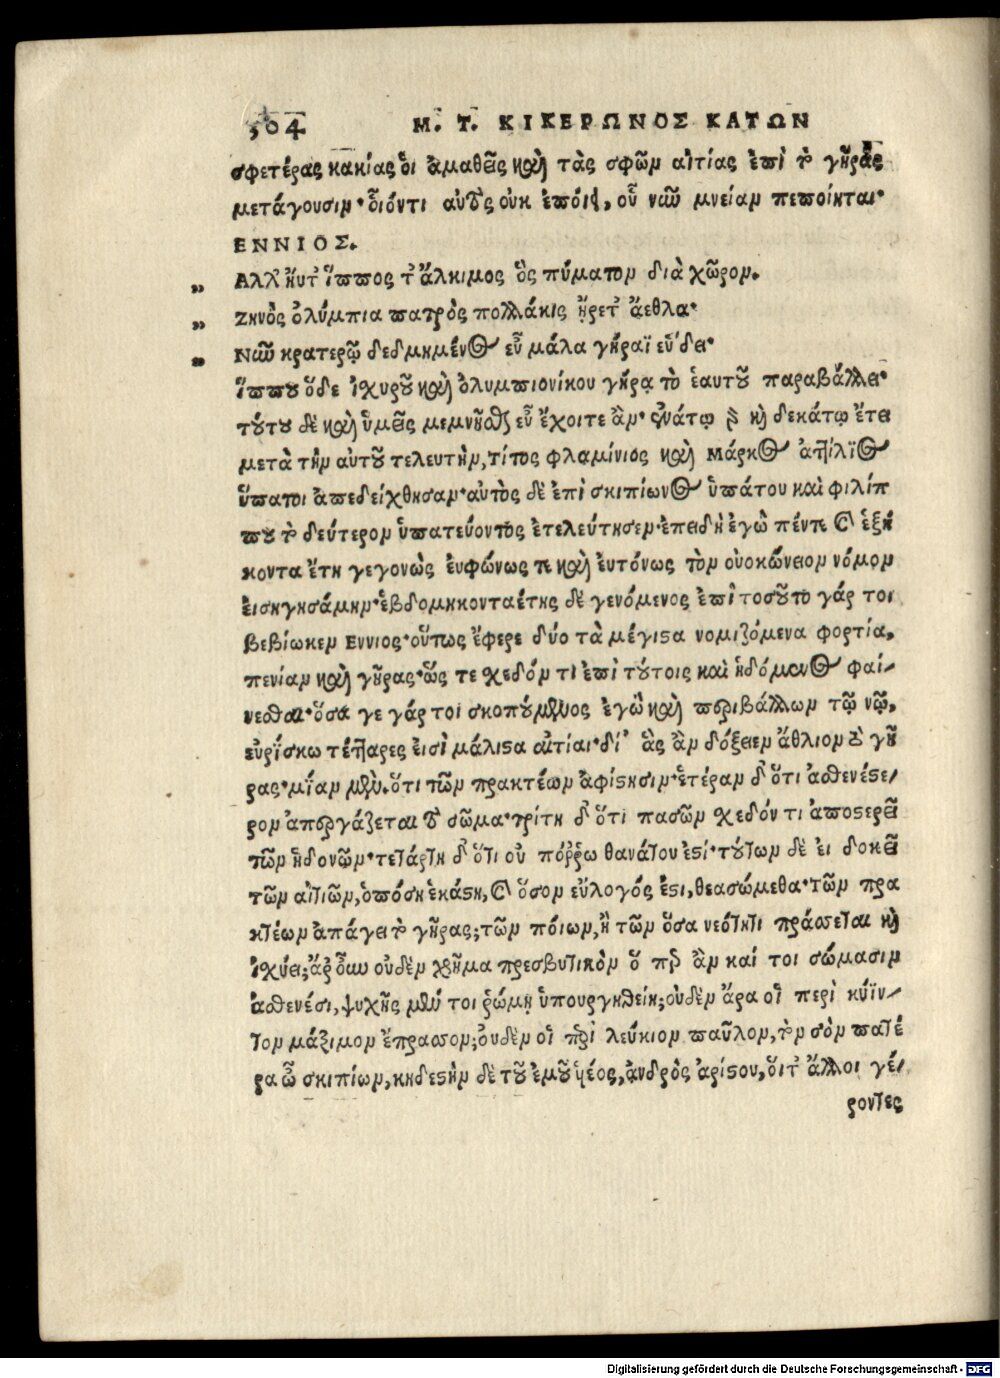 304 Μ. Τ. ΚΙΚΕΡΩΝΟΣ ΚΑΤΩΝ
σφετέρας κακίας ὁι ἀμαθεῖς καὶ τὰς σφῶν αἰτίας ἐπὶ τὸ γῆρας
μετάγουσιν· ὁιόντι αὐτὸς οὐκ ἐπόιει, οὗ νῶν μνείαν πεποίηται·
ΕΝΝΙΟΣ.
„ Αλλ' ἠυτ' ἵππος τ' ἄλκιμος ὃς πύματον διὰ χῶρον.
„ Ζηνὸς ὀλύμπια πατρὸς πολλάκις ᾕρετ' ἄεθλα·
„ Νῶν κρατερῷ δεδμημένος εὖ μάλα γήραϊ εὕδει·
ἵππου ὅδε ἰσχυροῦ καὶ ὀλυμπιονίκου γήρᾳ τὸ ἑαυτοῦ παραβάλλει·
τούτου δὲ καὶ ὑμεῖς μεμνῆσθαι εὖ ἔχοιτε ἂν· ἐννάτῳ γὰρ καὶ δεκάτῳ ἔτει
μετὰ τὴν αὐτοῦ τελευτὴν, τίτος φλαμίνιος καὶ Μάρκος ἀττίλϊος
ὕπατοι ἀπεδείχθησαν· αὐτὸς δὲ ἐπὶ σκιπίωνος ὑπάτου καὶ φιλίπ
που τὸ δεύτερον ὑπατεύοντος ἐτελεύτησεν· ἐπειδὴ ἐγὼ πέντε καὶ ἑξή
κοντα ἔτη γεγονὼς ἐυφώνως τε καὶ ἐυτόνως τὸν ουοκώνειον νόμον
ἐισηγησάμην· ἑβδομηκονταέτης δὲ γενόμενος ἐπὶ τοσοῦτο γάρ τοι
βεβίωκεν Εννιος· οὕτως ἔφερε δύο τὰ μέγιστα νομιζόμενα φορτία,
πενίαν καὶ γῆρας· ὥς τε σχεδόν τι ἐπὶ τούτοις καὶ ἡδόμενος φαί-
νεσθαι· ὅσα γε γάρ τοι σκοπούμενος ἐγὼ καὶ περιβάλλων τῷ νῷ,
εὑρίσκω τέτταρες ἐισὶ μάλιστα αἰτίαι· δι' ἃς ἂν δόξειεν ἄθλιον τὸ γῆ
ρας· μίαν μὲν. ὅτι τῶν πρακτέων ἀφίστησιν· ἑτέραν δ' ὅτι ἀσθενέστε-
ρον ἀπεργάζεται τὸ σῶμα· τρίτη δ' ὅτι πασῶν σχεδόν τι ἀποστερεῖ
τῶν ἡδονῶν· τετάρτη δ' ὅτι οὐ πόῤῥω θανάτου ἐστί· τούτων δὲ ει δοκεῖ
τῶν αἰτιῶν, ὁπόση ἑκάστη, καὶ ὅσον εὔλογός ἐστι, θεασώμεθα· τῶν πρα
κτέων ἀπάγει τὸ γῆρας; τῶν πόιων, ἢ τῶν ὅσα νεότητι πράσσεται καὶ
ἰσχύει; ἆρ' οὖν οὐδὲν χρῆμα πρεσβυτικὸν ὅ περ ἂν καί τοι σώμασιν
ἀσθενέσι, ψυχῆς μέν τοι ῥώμῃ ὑπουργηθείη; οὐδὲν ἄρα οἱ περὶ κύϊν-
τον μάξιμον ἔπρασσον; ὀυδὲν οἱ περὶ λεύκιον παῦλον, τὸν σὸν πατέ
ρα ὦ σκιπίων, κηδεστὴν δὲ τοῦ ἐμοῦ υἱέος, ἀνδρὸς ἀρίστου, ὅιτ' ἄλλοι γέ-
ροντες
Digitalisierung gefördert durch die Deutsche Forschungsgemeinschaft - DFG